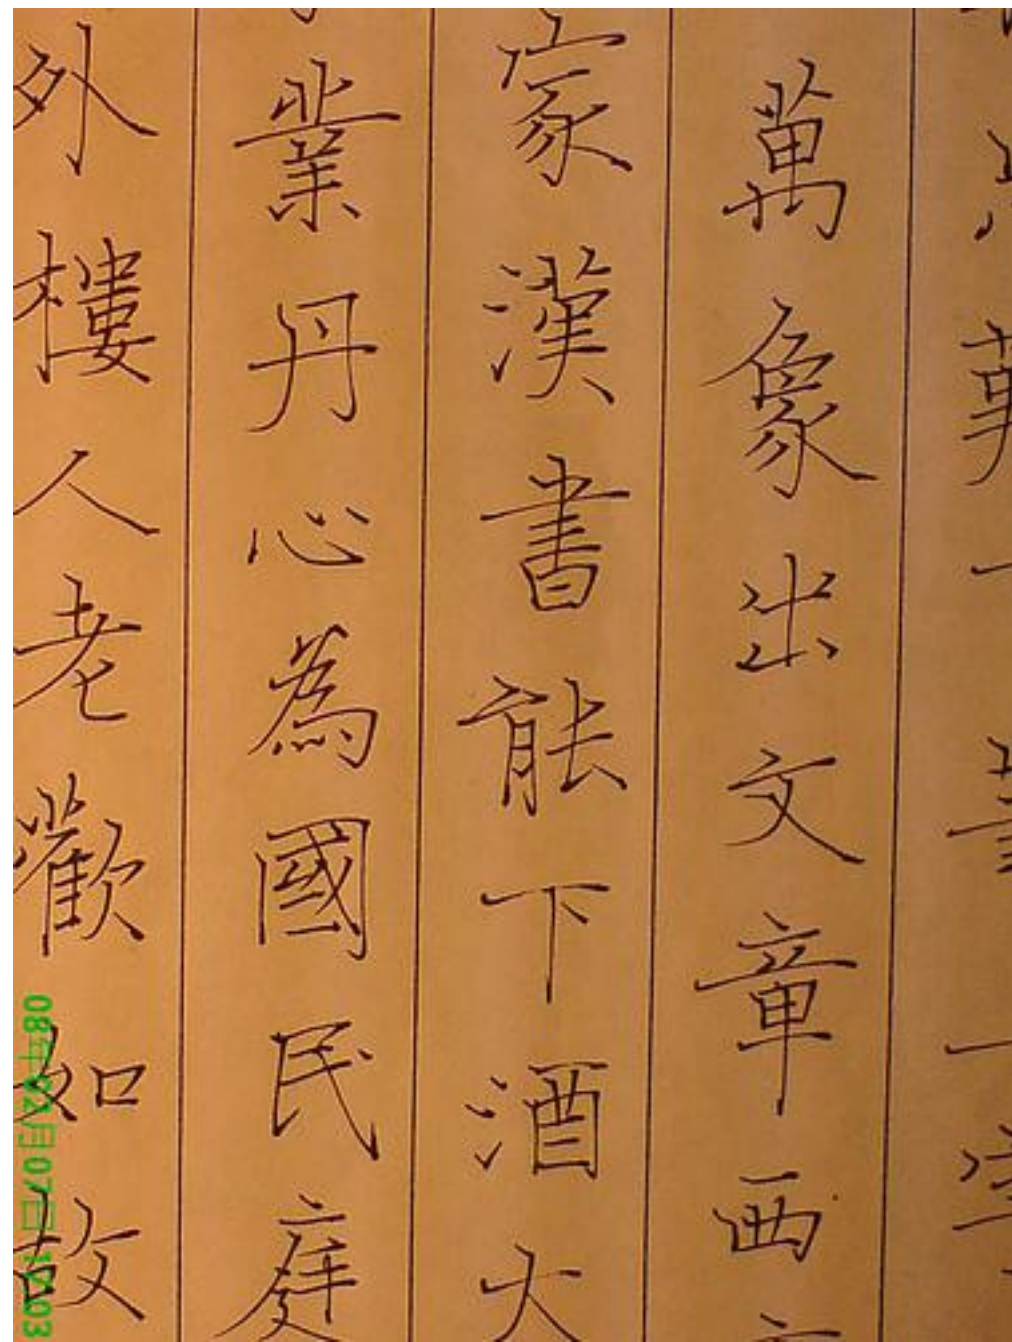 萬象出文章西
家漢書能下酒大
業丹心為國民庭
外樓人老歡如故
08年02月07日